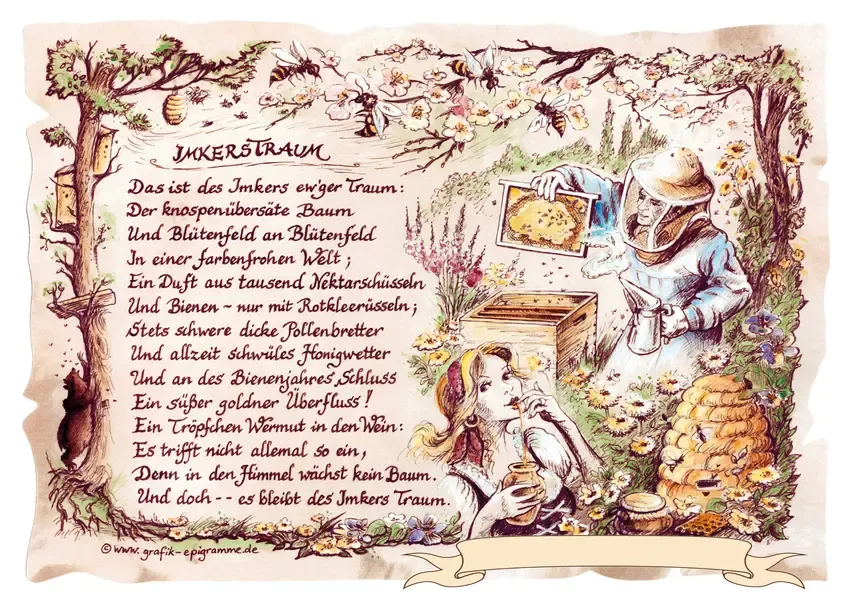 IMKERSTRAUM
Das ist des Imkers ew'ger Traum:
Der knospenübersäte Baum
Und Blütenfeld an Blütenfeld
In einer farbenfrohen Welt;
Ein Duft aus tausend Nektarschüsseln
Und Bienen ~ nur mit Rotkleerüsseln;
Stets schwere dicke Pollenbretter
Und allzeit schwüles Honigwetter
Und an des Bienenjahres Schluss
Ein süßer goldner Überfluss!
Ein Tröpfchen Wermut in den Wein:
Es trifft nicht allemal so ein,
Denn in den Himmel wächst kein Baum.
Und doch -- es bleibt des Imkers Traum.
© www.grafik-epigramme.de